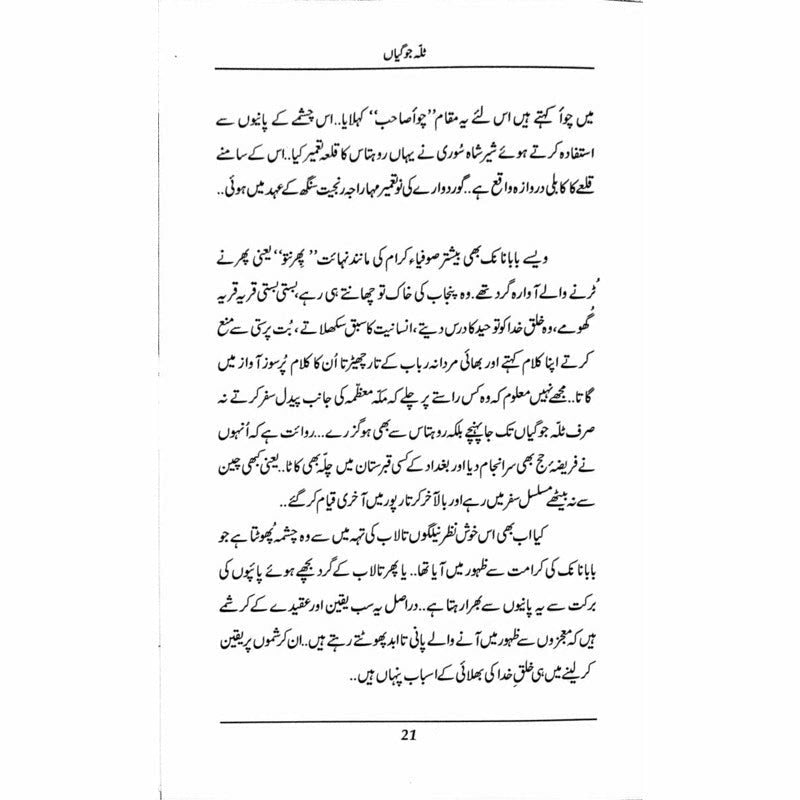 ٹلّہ جوگیاں
میں چوآ کہتے ہیں اس لئے یہ مقام ”چوآ صاحب“ کہلایا..اس چشمے کے پانیوں سے
استفادہ کرتے ہوئے شیر شاہ سُوری نے یہاں روہتاس کا قلعہ تعمیر کیا..اس کے سامنے
قلعے کا کابلی دروازہ واقع ہے..گوردوارے کی نو تعمیر مہاراجہ رنجیت سنگھ کے عہد میں ہوئی..
ویسے بابا نانک بھی بیشتر صوفیاء کرام کی مانند نہائت ”پھِرنتو“ یعنی پھرنے
ٹُرنے والے آوارہ گرد تھے.وہ پنجاب کی خاک تو چھانتے ہی رہے، بستی بستی قریہ قریہ
گھُومے، وہ خلق خدا کو توحید کا درس دیتے، انسانیت کا سبق سکھلاتے، بُت پرستی سے منع
کرتے اپنا کلام کہتے اور بھائی مردانہ رباب کے تار چھیڑتا اُن کا کلام پُرسوز آواز میں
گاتا..مجھے نہیں معلوم کہ وہ کس راستے پر چلے کہ مکّہ معظّمہ کی جانب پیدل سفر کرتے نہ
صرف ٹلّہ جوگیاں تک جا پہنچے بلکہ روہتاس سے بھی ہو گزرے...روائت ہے کہ اُنہوں
نے فریضۂ حج بھی سرانجام دیا اور بغداد کے کسی قبرستان میں چلّہ بھی کاٹا..یعنی کبھی چین
سے نہ بیٹھے مسلسل سفر میں رہے اور بالآخر کرتارپور میں آخری قیام کر گئے..
کیا اب بھی اس خوش نظر نیلگوں تالاب کی تہہ میں سے وہ چشمہ پھُوٹتا ہے جو
بابا نانک کی کرامت سے ظہور میں آیا تھا.. یا پھر تالاب کے گرد بچھے ہوئے پائپوں کی
برکت سے یہ پانیوں سے بھرا رہتا ہے..دراصل یہ سب یقین اور عقیدے کے کرشمے
ہیں کہ معجزوں سے ظہور میں آنے والے پانی تا ابد پھوٹتے رہتے ہیں..ان کرشموں پر یقین
کر لینے میں ہی خلقِ خدا کی بھلائی کے اسباب پنہاں ہیں..
21